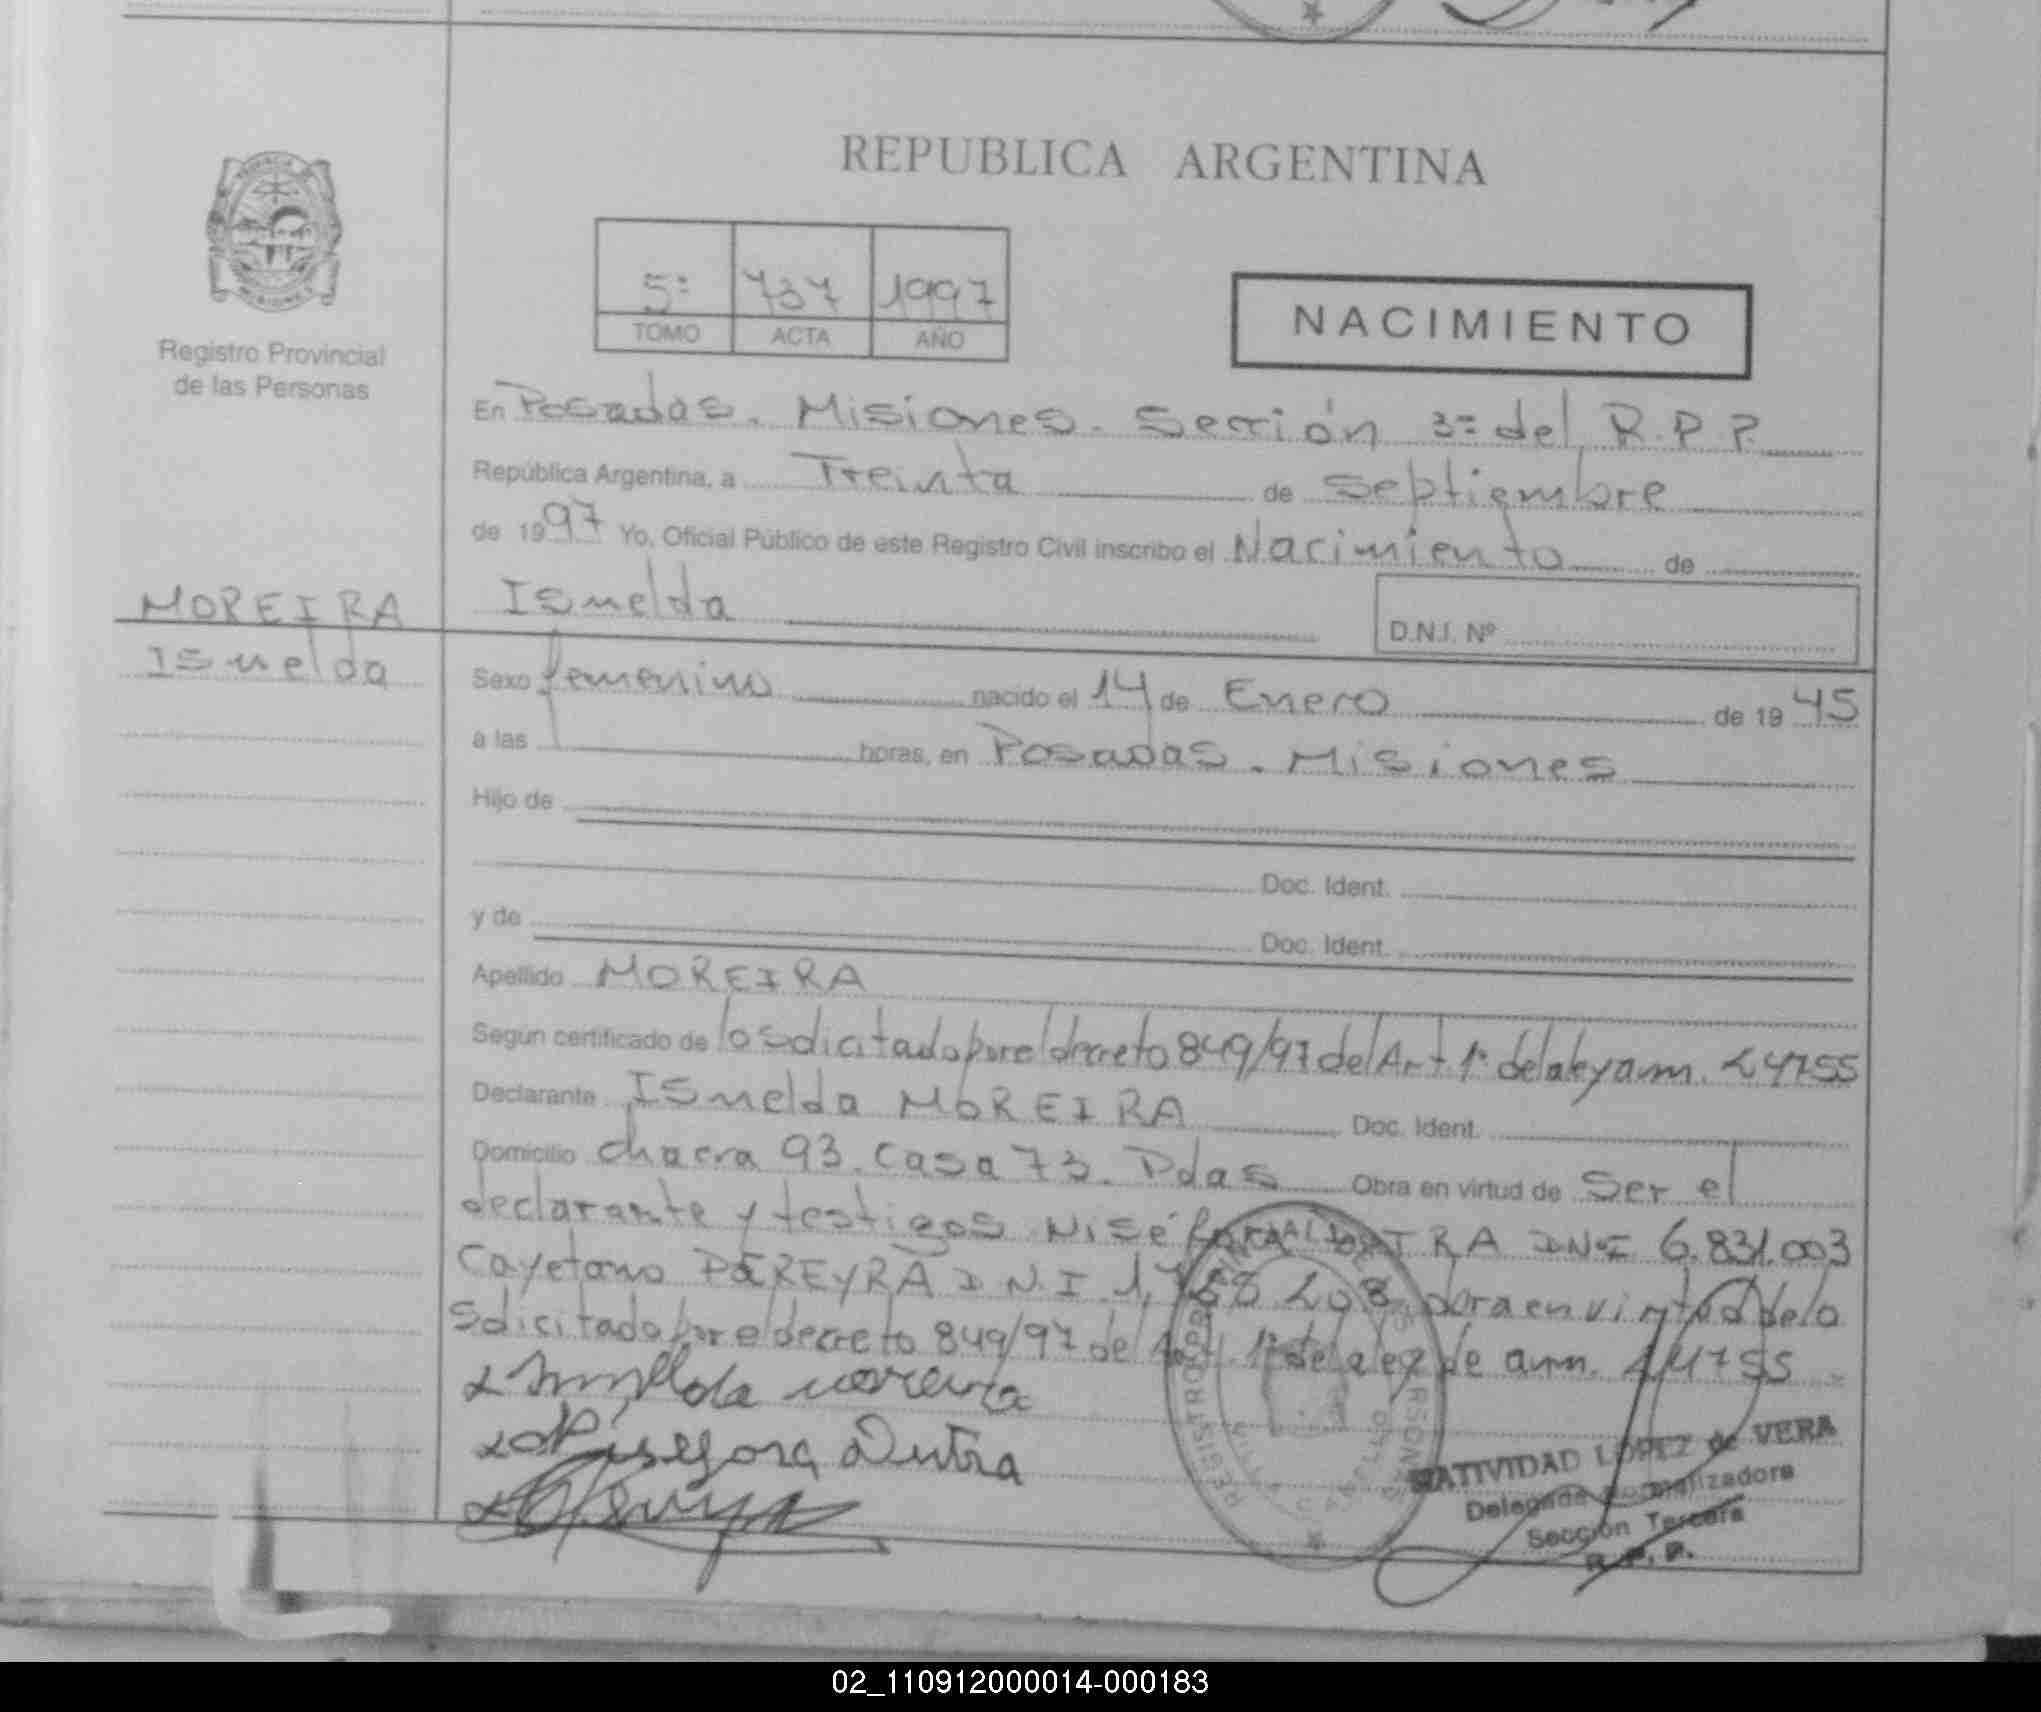 REPUBLICA ARGENTINA
Registro Provincial
de las Personas
5º 737 1997
TOMO ACTA AÑO
NACIMIENTO
En Posadas. Misiones. Sección 3ª del R.P.P.
República Argentina, a Treinta de Septiembre
de 1997 Yo, Oficial Público de este Registro Civil inscribo el Nacimiento de
Ismelda
D.N.I. Nº
MOREIRA
Ismelda
Sexo femenino nacido el 14 de Enero de 1945
a las horas, en Posadas. Misiones
Hijo de
Doc. Ident.
y de Doc. Ident.
Apellido MOREIRA
Según certificado de lo solicitado por el decreto 849/97 del Art. 1º de la ley am. 24755
Declarante Ismelda MOREIRA Doc. Ident.
Domicilio chacra 93. casa 73. Pdas Obra en virtud de Ser el
declarante y testigos DNI 6.831.003
Cayetano PEREYRA D.N.I 1. obra en virtud de lo
Solicitado por el decreto 849/97 del Art. 1º de la ley de am. 24755
Ismelda moreira
Dutra
NATIVIDAD LOPEZ de VERA
Delegada Normalizadora
Sección Tercera
R. P. P.
02_110912000014-000183